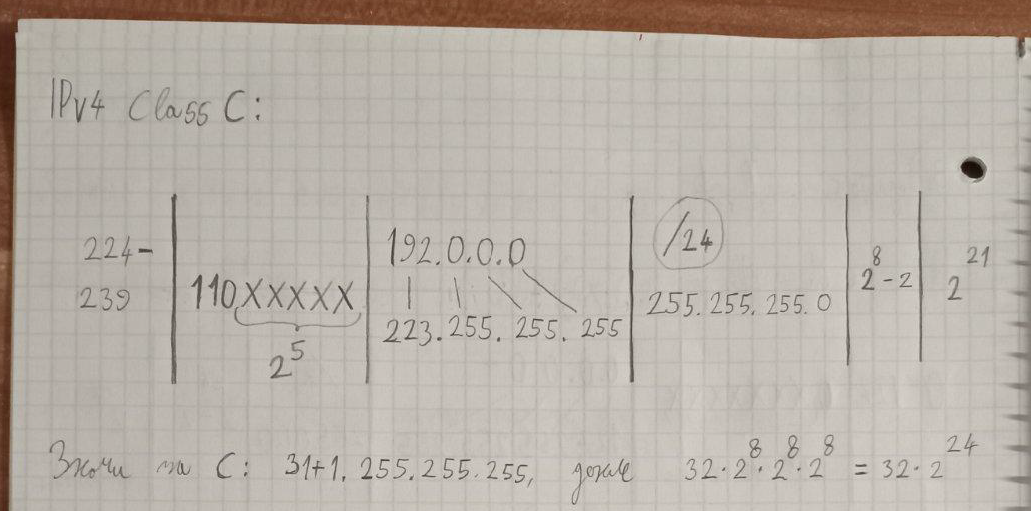 IPv4 Class C:
224-
239
110XXXXX
2⁵
192.0.0.0
223.255.255.255
/24
255.255.255.0
2⁸-2
2²¹
C: 31+1.255.255.255, дакле 32·2⁸·2⁸·2⁸ = 32·2²⁴